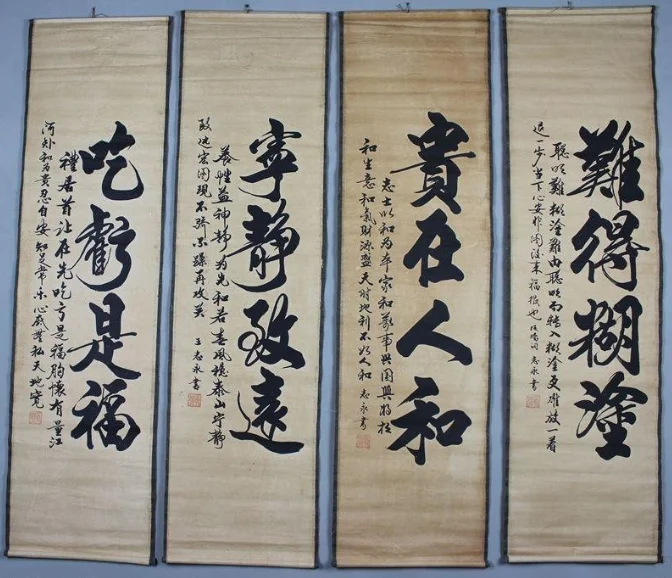 難得糊塗
聰明難糊塗難由聰明而轉入糊塗更難放一着
退一步當下心安非圖後來福報也 志永書
貴在人和
志士以和為本家和萬事興国興將相
和生意和氣財源盛天時地利不如人和 志永書
寧靜致遠
養性益神靜為先和若春風穩泰山宁靜
致遠宏圖現不驕不躁再攻关 王志永書
吃虧是福
禮居首让在先吃亏是福胸懷有量江
河外和為貴忍自安知足常乐心感無私天地寬